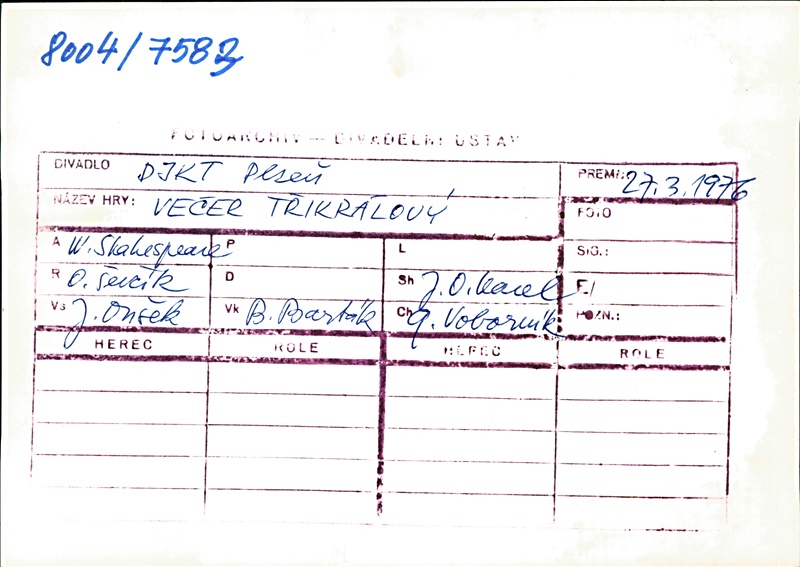 8004/7583
FOTOARCHIV — DIVADELNÍ ÚSTAV
DIVADLO DJKT Plzeň PREM.: 27.3.1976
NÁZEV HRY: VEČER TŘIKRÁLOVÝ FOTO
A W. Shakespeare P L SIG.:
R O. Ševčík D Sh J. O. Karel F/
Vs J. Onšek Vk B. Barták Ch J. Voborník POZN.:
HEREC ROLE HEREC ROLE